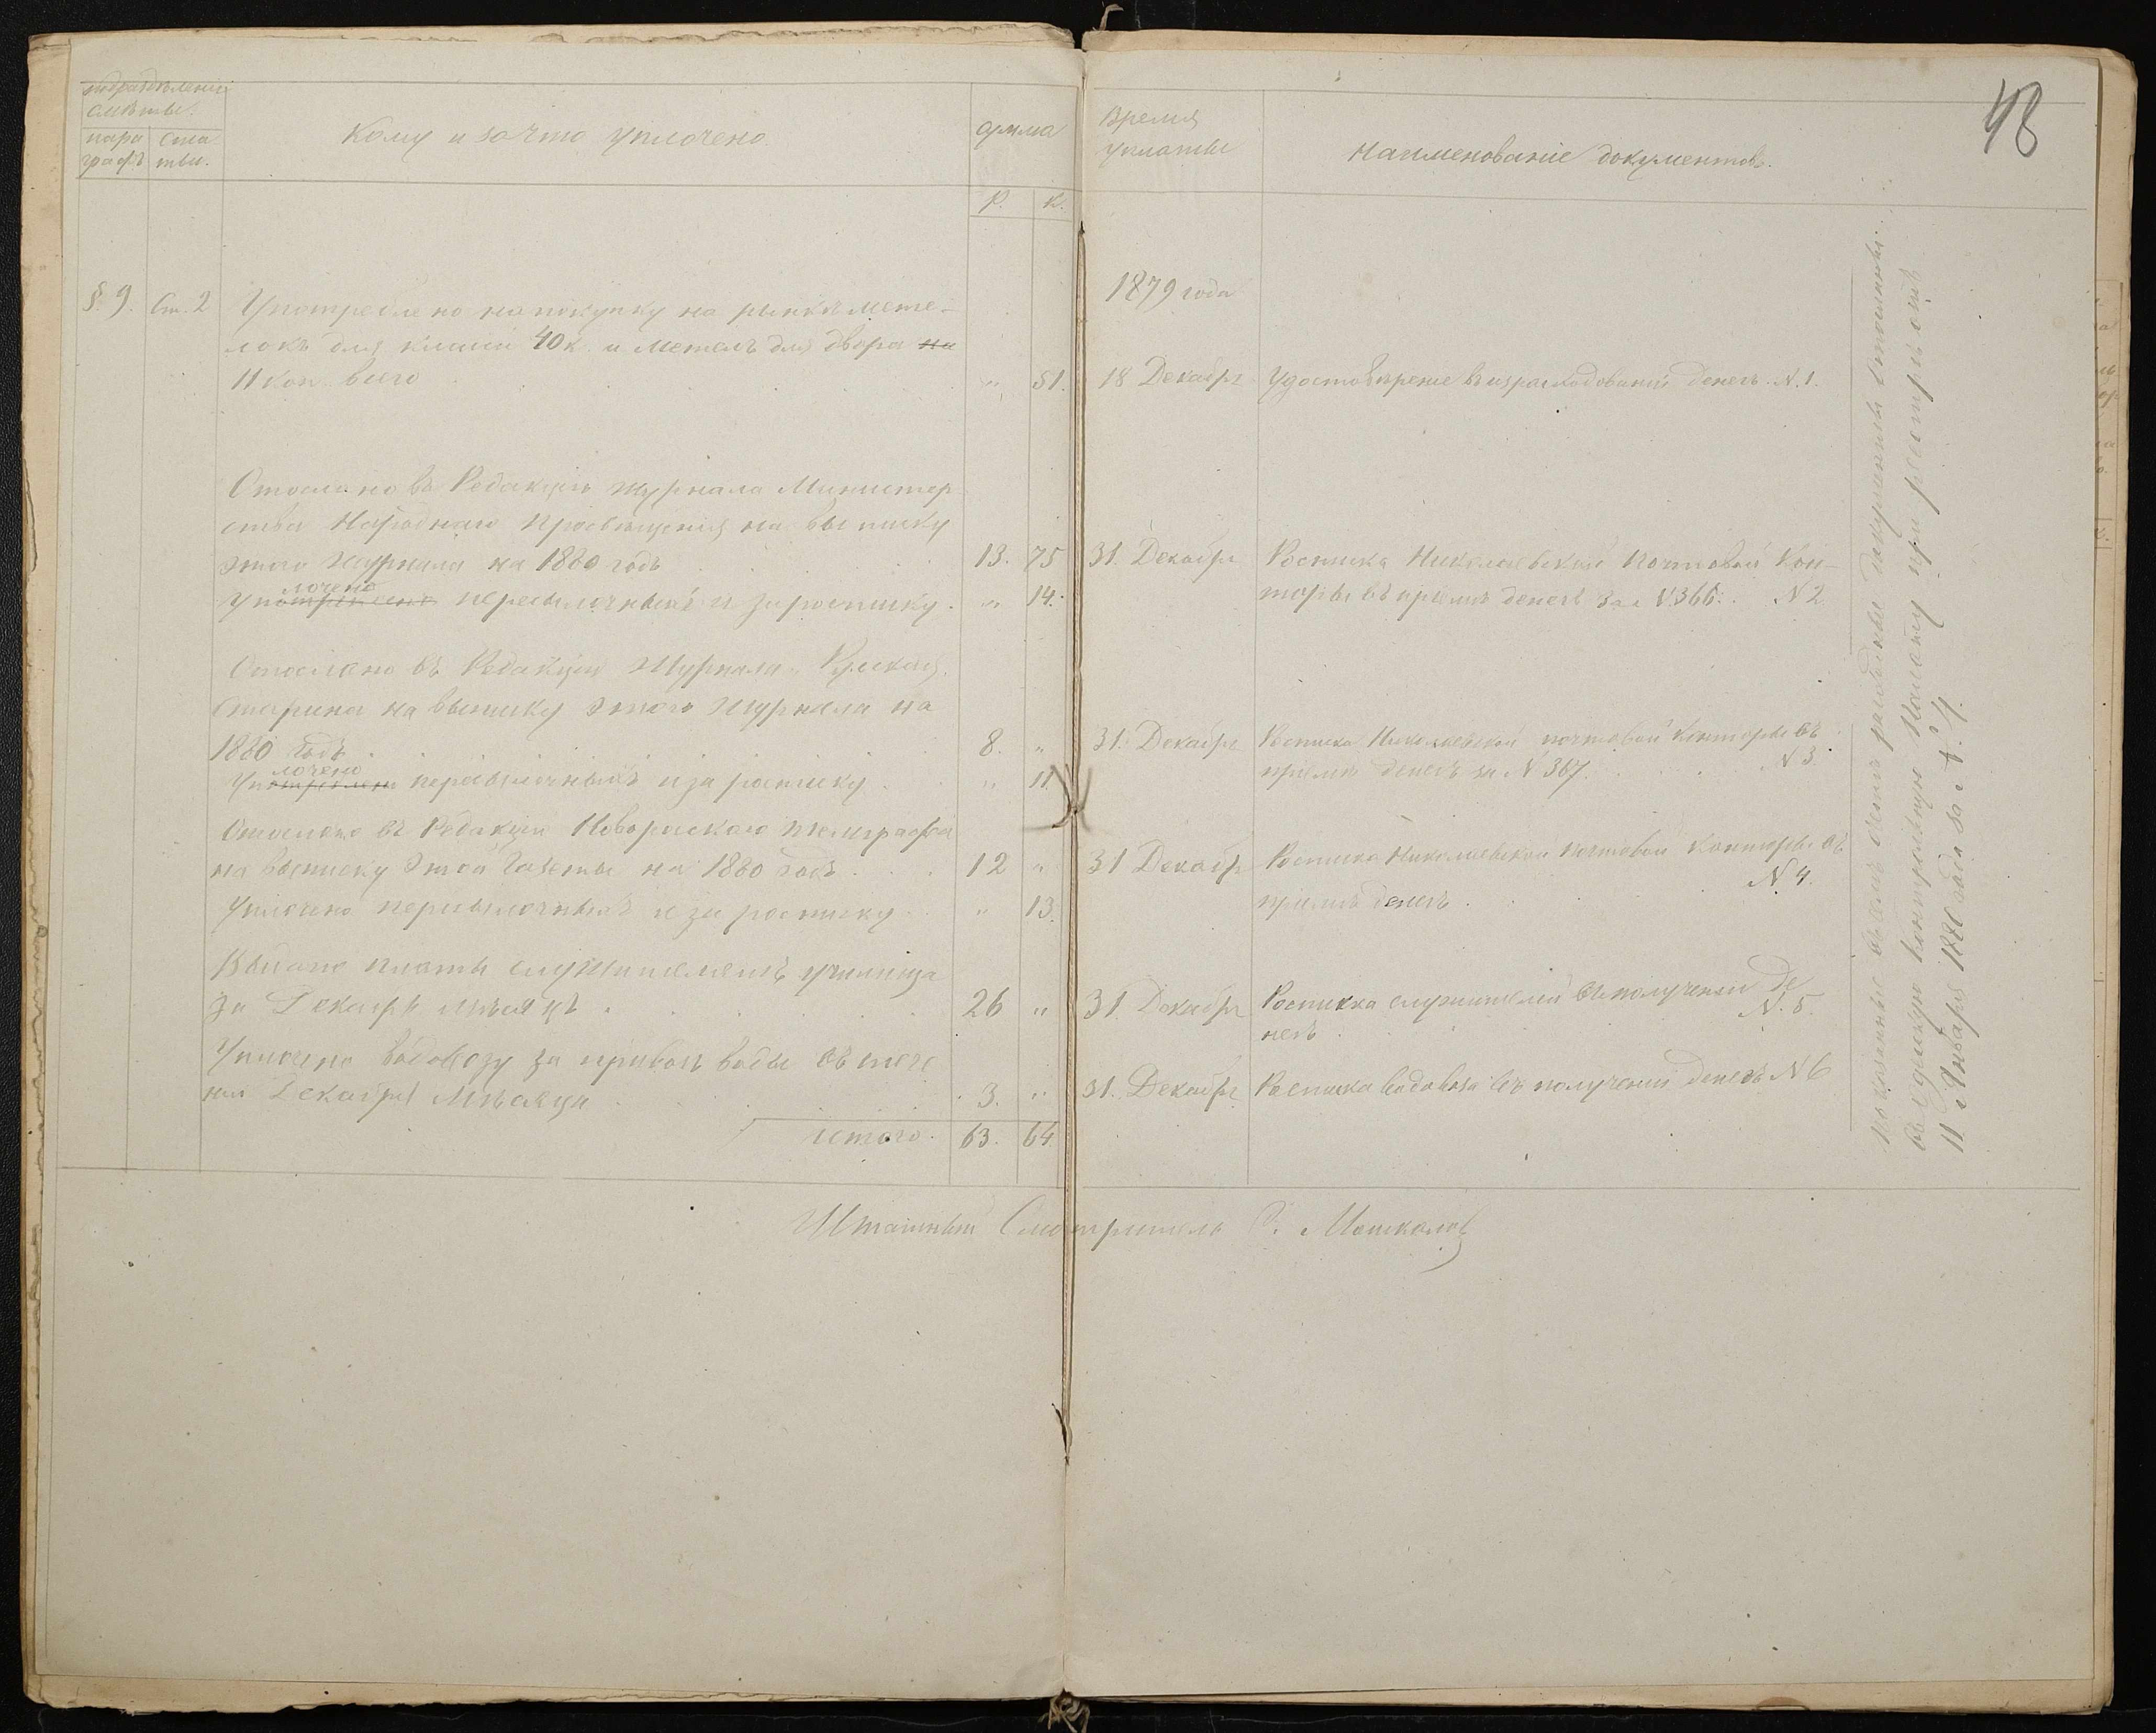 48
подраздѣленія
смѣты.
пара
графъ
ста
тьи.
Кому и за что уплочено.
сумма
Р.
К.
Время
уплаты
Наименованіе документовъ.
§ 9. Ст. 2
1879 года
Употреблено на покупку на рынкѣ мете-
локъ для 40 к. и метелъ для двора на
11 коп. всего " 51. 18 Декабря Удостовѣреніе въ израсходованіи денегъ. N. 1.
Отослано въ Редакцію журнала Министер
ства Народнаго Просвѣщенія на выписку
этого журнала на 1880 годъ 13. 75 31 Декабря Росписка Николаевской Почтовой Кон-
лочено
Употреблено пересылочныхъ и за росписку. " 14. торы въ пріемѣ денегъ за N 366. N 2
Отослано въ Редакцію Журнала Русская
Старина на выписку этого Журнала на
1880 годъ. 8. " 31. Декабря Росписка Николаевской почтовой Конторы въ
лочено
Употреблено пересылочныхъ и за росписку " 11 пріемѣ денегъ за N 367. N 3.
Отослано въ Редакцію Новороскаго телеграфа
на выписку этой Газеты на 1880 годъ 12 " 31 Декабря Росписка Николаевской почтовой Конторы въ
Уплочено пересылочныхъ и за росписку " 13. пріемѣ денегъ. N. 4.
Выдано платы служителемъ училища
за Декабрь мѣсяцъ. 26 " 31 Декабря Росписка служителей въ полученіи де
негъ. N. 5.
Уплочено водовозу за привозъ воды въ тече
ніи Декабря Мѣсяца 3. " 31. Декабря Росписка водовоза въ полученіи денегъ N 6
итого. 63. 64.
Штатный Смотритель Машкалов
Показанные въ семъ счетѣ документы отосланы
въ Контрольную Палату при реестрѣ отъ
11 Января 1880 года за N. 4.